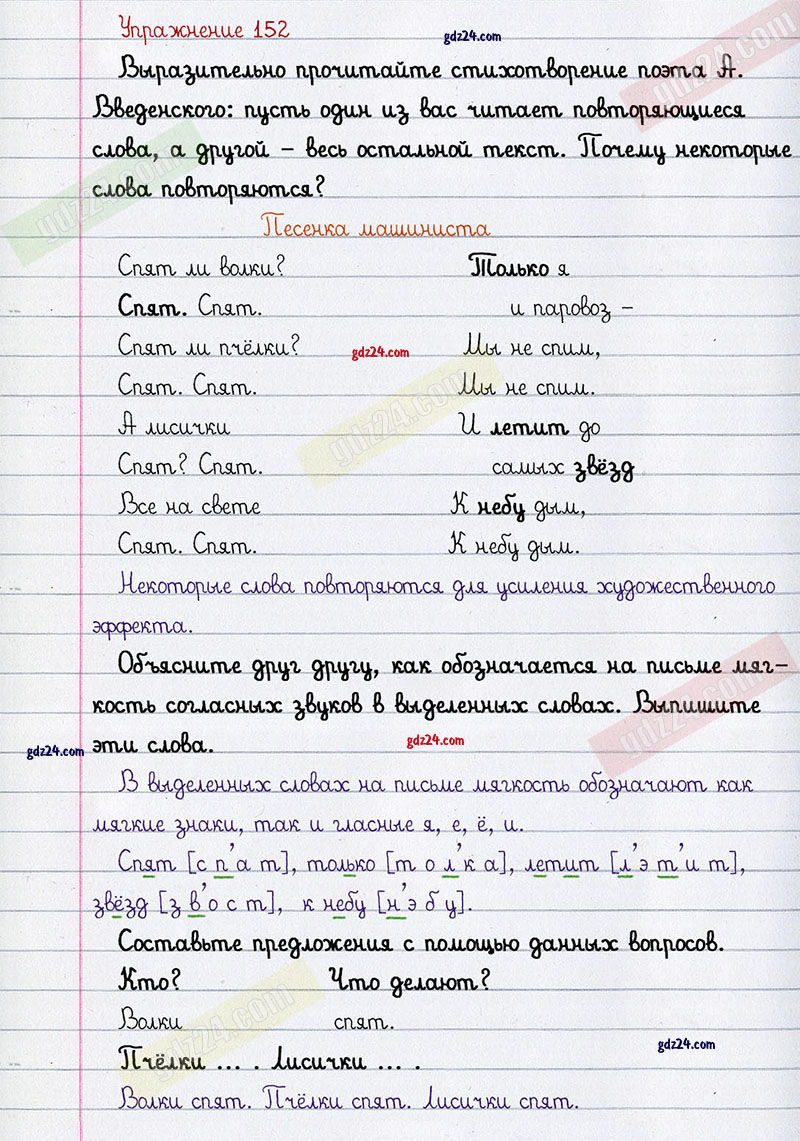 Упражнение 152
gdz24.com
Выразительно прочитайте стихотворение поэта А.
Введенского: пусть один из вас читает повторяющиеся
слова, а другой – весь остальной текст. Почему некоторые
слова повторяются?
Песенка машиниста
Спят ли волки?
Спят. Спят.
Спят ли пчёлки?
gdz24.com
Спят. Спят.
А лисички
Спят? Спят.
Все на свете
Спят. Спят.
Только я
и паровоз –
Мы не спим,
Мы не спим.
И летит до
самых звёзд
К небу дым,
К небу дым.
Некоторые слова повторяются для усиления художественного
эффекта.
Объясните друг другу, как обозначается на письме мяг-
кость согласных звуков в выделенных словах. Выпишите
эти слова.
gdz24.com
gdz24.com
В выделенных словах на письме мягкость обозначают как
мягкие знаки, так и гласные я, е, ё, и.
Спят [с п’ а т], только [т о л’ к а], летит [л’ э т’ и т],
звёзд [з в’ о с т], к небу [н’ э б у].
Составьте предложения с помощью данных вопросов.
Кто? Что делают?
Волки спят.
gdz24.com
Пчёлки ... . Лисички ... .
Волки спят. Пчёлки спят. Лисички спят.
gdz24.com
gdz24.com
gdz24.com
gdz24.com
gdz24.com